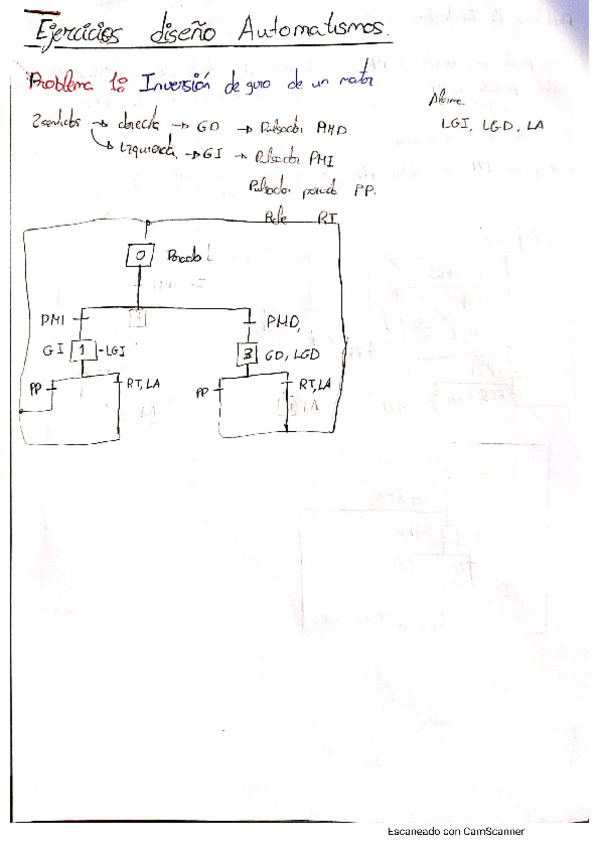 Ejercicios diseño Automatismos.
Problema 1º Inversión de giro de un motor
2 sentidos → derecha → GD → Pulsador PMD
↳ Izquierda → GI → Pulsador PMI
Pulsador parada PP.
Rele RT
Alarma
LGI, LGD, LA
0 Parado
PMI
PMD
GI 1 - LGI
3 GD, LGD
PP RT, LA
PP RT, LA
Escaneado con CamScanner